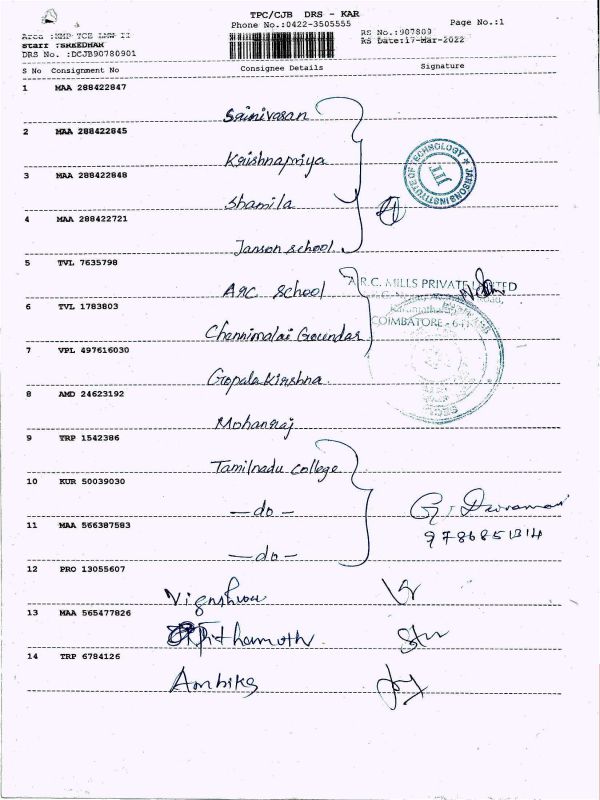 TPC/CJB DRS - KAR
Phone No.:0422-3505555
Page No.:1
RS No.:907809
RS Date:17-Mar-2022
Staff :SREEDHAR
DRS No. :DCJB90780901
S No Consignment No Consignee Details Signature
1 MAA 288422847
Srinivasan
2 MAA 288422845
Krishnapriya
3 MAA 288422848
Shamila
4 MAA 288422721
Janson school
JANSONS INSTITUTE OF TECHNOLOGY
5 TVL 7635798
ARC School
A.R.C. MILLS PRIVATE LIMITED
COIMBATORE
6 TVL 1783803
Chennimalai Goundar
7 VPL 497616030
Gopalakrishna
8 AMD 24623192
Mohanraj
9 TRP 1542386
Tamilnadu College
10 KUR 50039030
— do —
11 MAA 566387583
— do —
12 PRO 13055607
Vigneshwar
13 MAA 565477826
14 TRP 6784126
Ambika